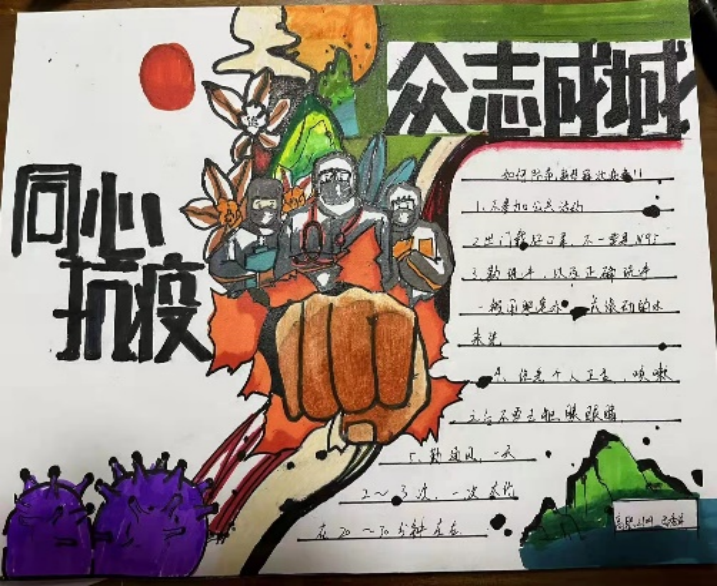 众志成城
同心
抗疫
如何防范新型冠状病毒!!
1.不参加公共活动
2.出门戴好口罩,不一定是N95
3.勤洗手,以及正确洗手
一般用肥皂水 或流动的水
来洗
4.注意个人卫生,咳嗽
之后不要去触摸眼睛
5.勤通风,一天
2～3次,一次大约
在20～30分钟左右